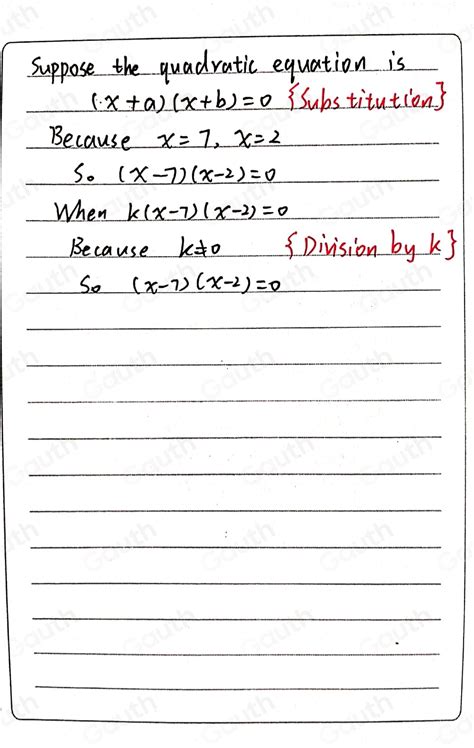 Suppose the quadratic equation is
(x+a)(x+b)=0 {Substitution}
Because x=7, x=2
So (x-7)(x-2)=0
When k(x-7)(x-2)=0
Because k≠0 {Division by k}
So (x-7)(x-2)=0
Gauth